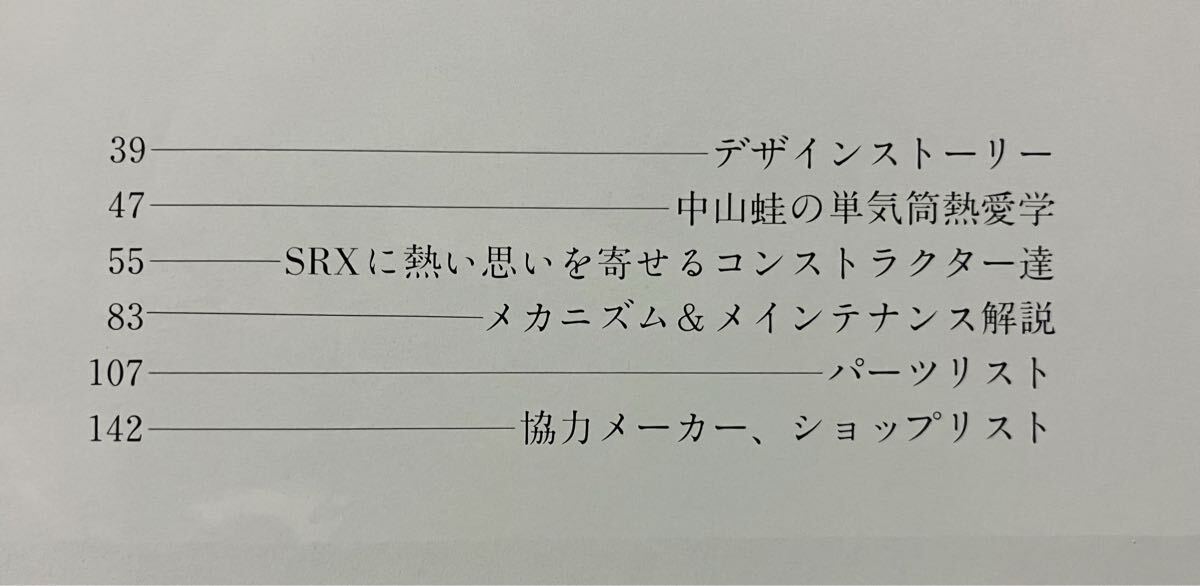 39 デザインストーリー
47 中山蛙の単気筒熱愛学
55 SRXに熱い思いを寄せるコンストラクター達
83 メカニズム&メインテナンス解説
107 パーツリスト
142 協力メーカー、ショップリスト